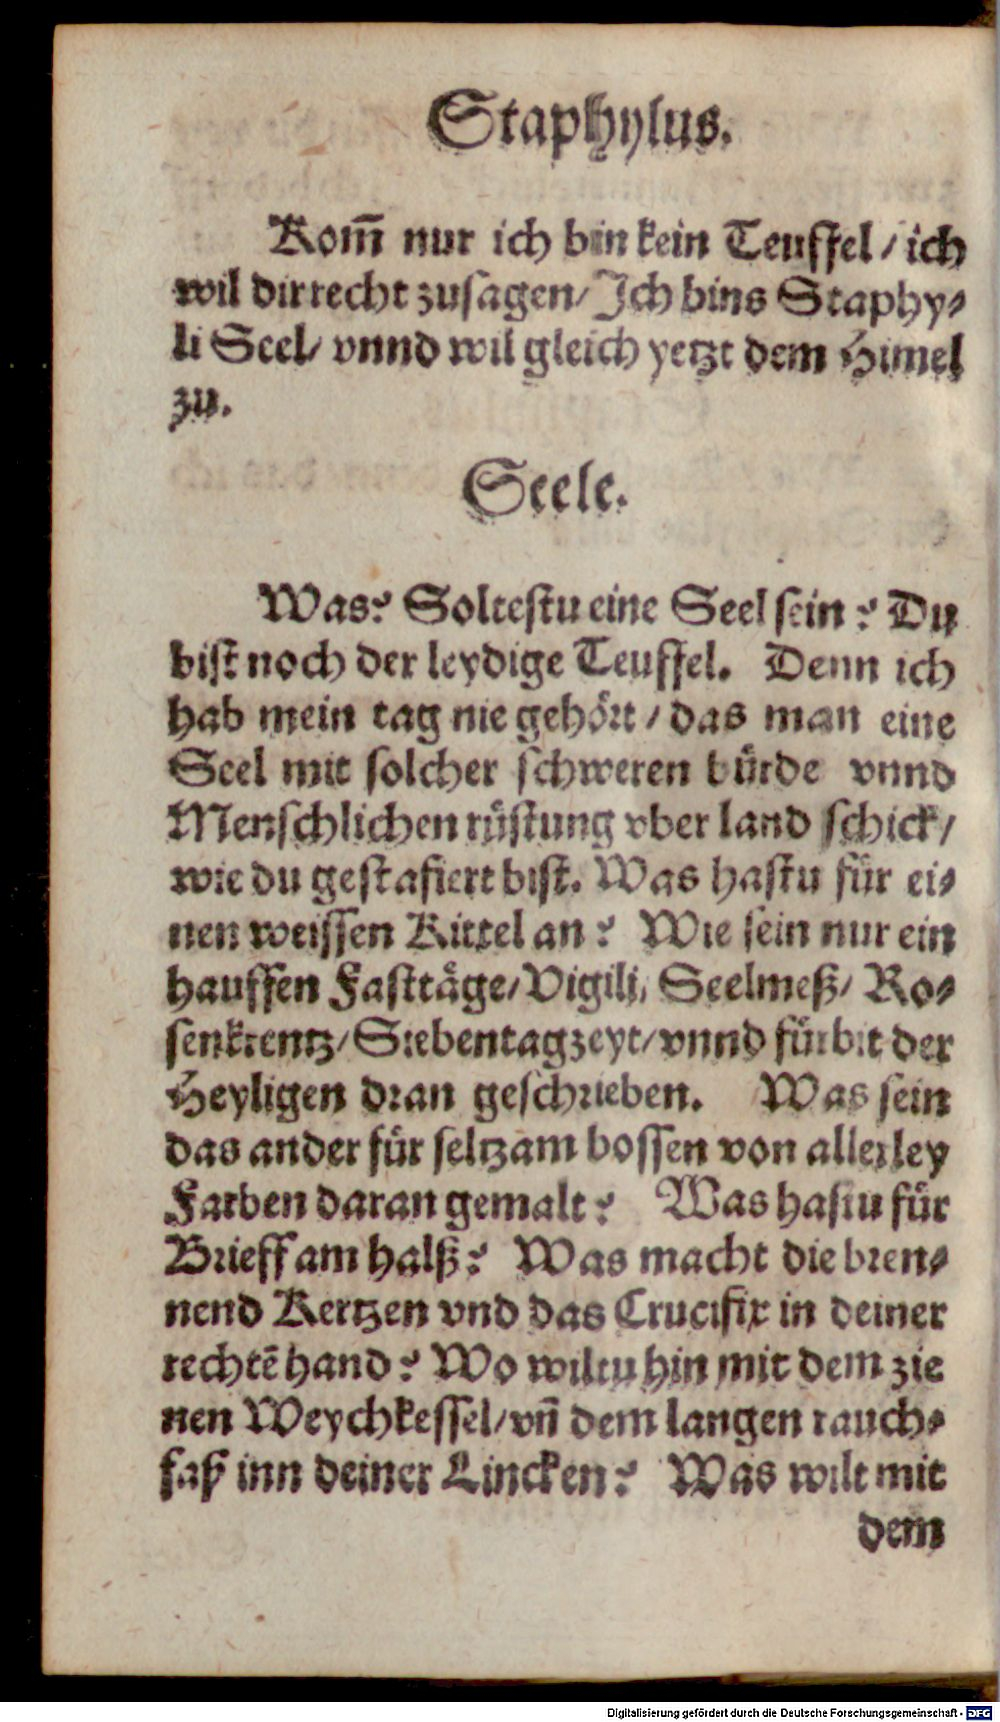 Staphylus.
Kom̃ nur ich bin kein Teuffel / ich
wil dir recht zusagen / Ich bins Staphy⸗
li Seel / vnnd wil gleich yetzt dem Himel
zu.
Seele.
Was? Soltestu eine Seel sein? Du
bist noch der leydige Teuffel. Denn ich
hab mein tag nie gehört / das man eine
Seel mit solcher schweren bürde vnnd
Menschlichen rüstung vber land schick /
wie du gestafiert bist. Was hastu für ei⸗
nen weissen Kittel an? Wie sein nur ein
hauffen Fasttäge / Vigilj, Seelmeß / Ro⸗
senkrentz / Siebentagzeyt / vnnd fürbit der
Heyligen dran geschrieben. Was sein
das ander für seltzam bossen von allerley
Farben daran gemalt? Was hastu für
Brieff am halß? Was macht die bren⸗
nend Kertzen vnd das Crucifix in deiner
rechtē hand? Wo wiltu hin mit dem zie
nen Weychkessel / vñ dem langen rauch⸗
faß inn deiner Lincken? Was wilt mit
dem
Digitalisierung gefördert durch die Deutsche Forschungsgemeinschaft - DFG